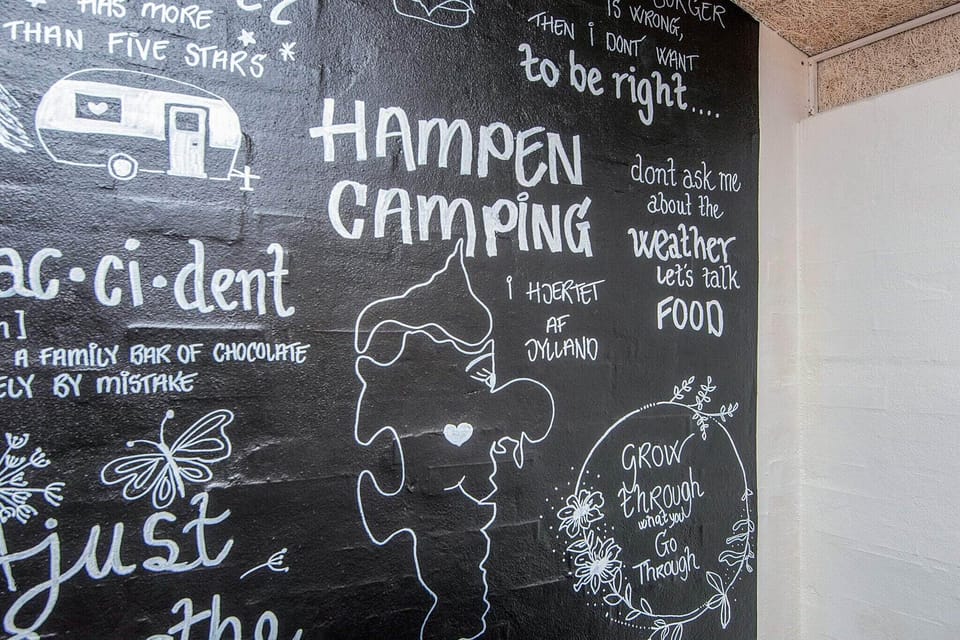 HAS MORE
THAN FIVE STARS
BURGER
IS WRONG,
THEN I DONT WANT
to be right....
HAMPEN
CAMPING
I HJERTET
AF
JYLLAND
dont ask me
about the
weather
let's talk
FOOD
ac·ci·dent
A FAMILY BAR OF CHOCOLATE
BY MISTAKE
GROW
through
what you
Go
Through
just
the